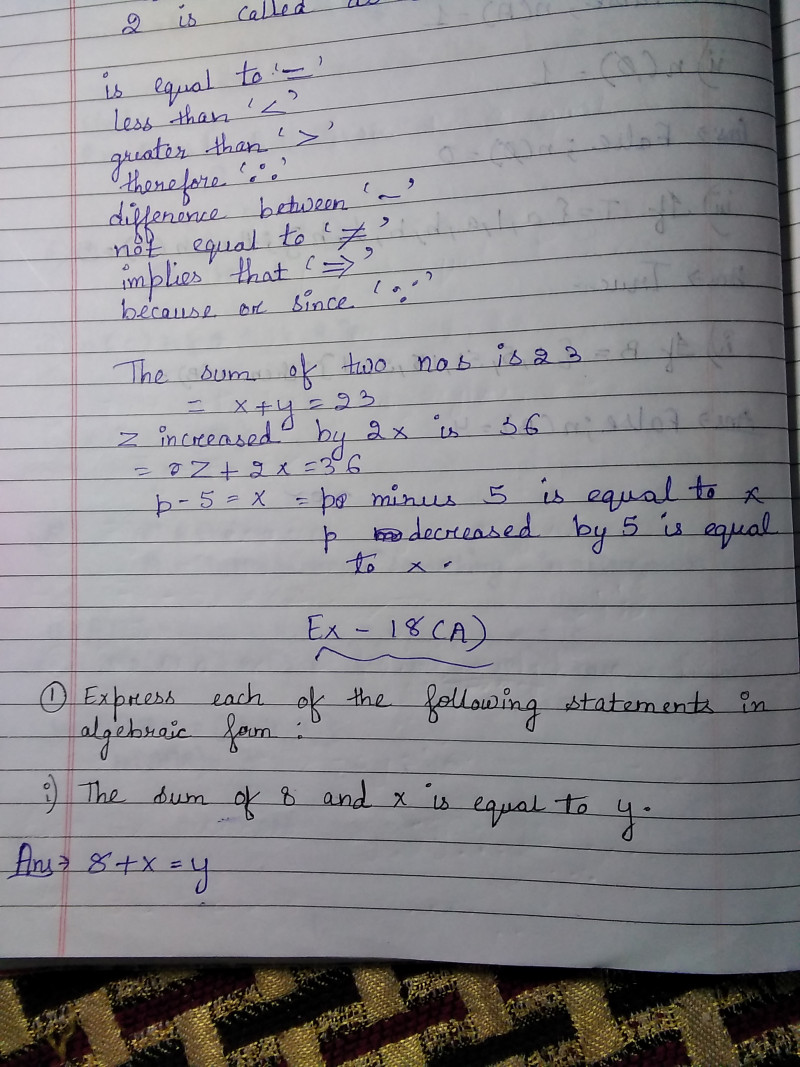 2 is called
is equal to '='
less than '<'
greater than '>'
therefore '∴'
difference between '~'
not equal to '≠'
implies that '⇒'
because or since '∵'
The sum of two nos is 23
= x+y = 23
z increased by 2x is 36
= z + 2x = 36
p - 5 = x = p minus 5 is equal to x
p decreased by 5 is equal
to x .
Ex - 18(A)
① Express each of the following statements in
algebraic form :
i) The sum of 8 and x is equal to y.
Ans⇒ 8+x = y